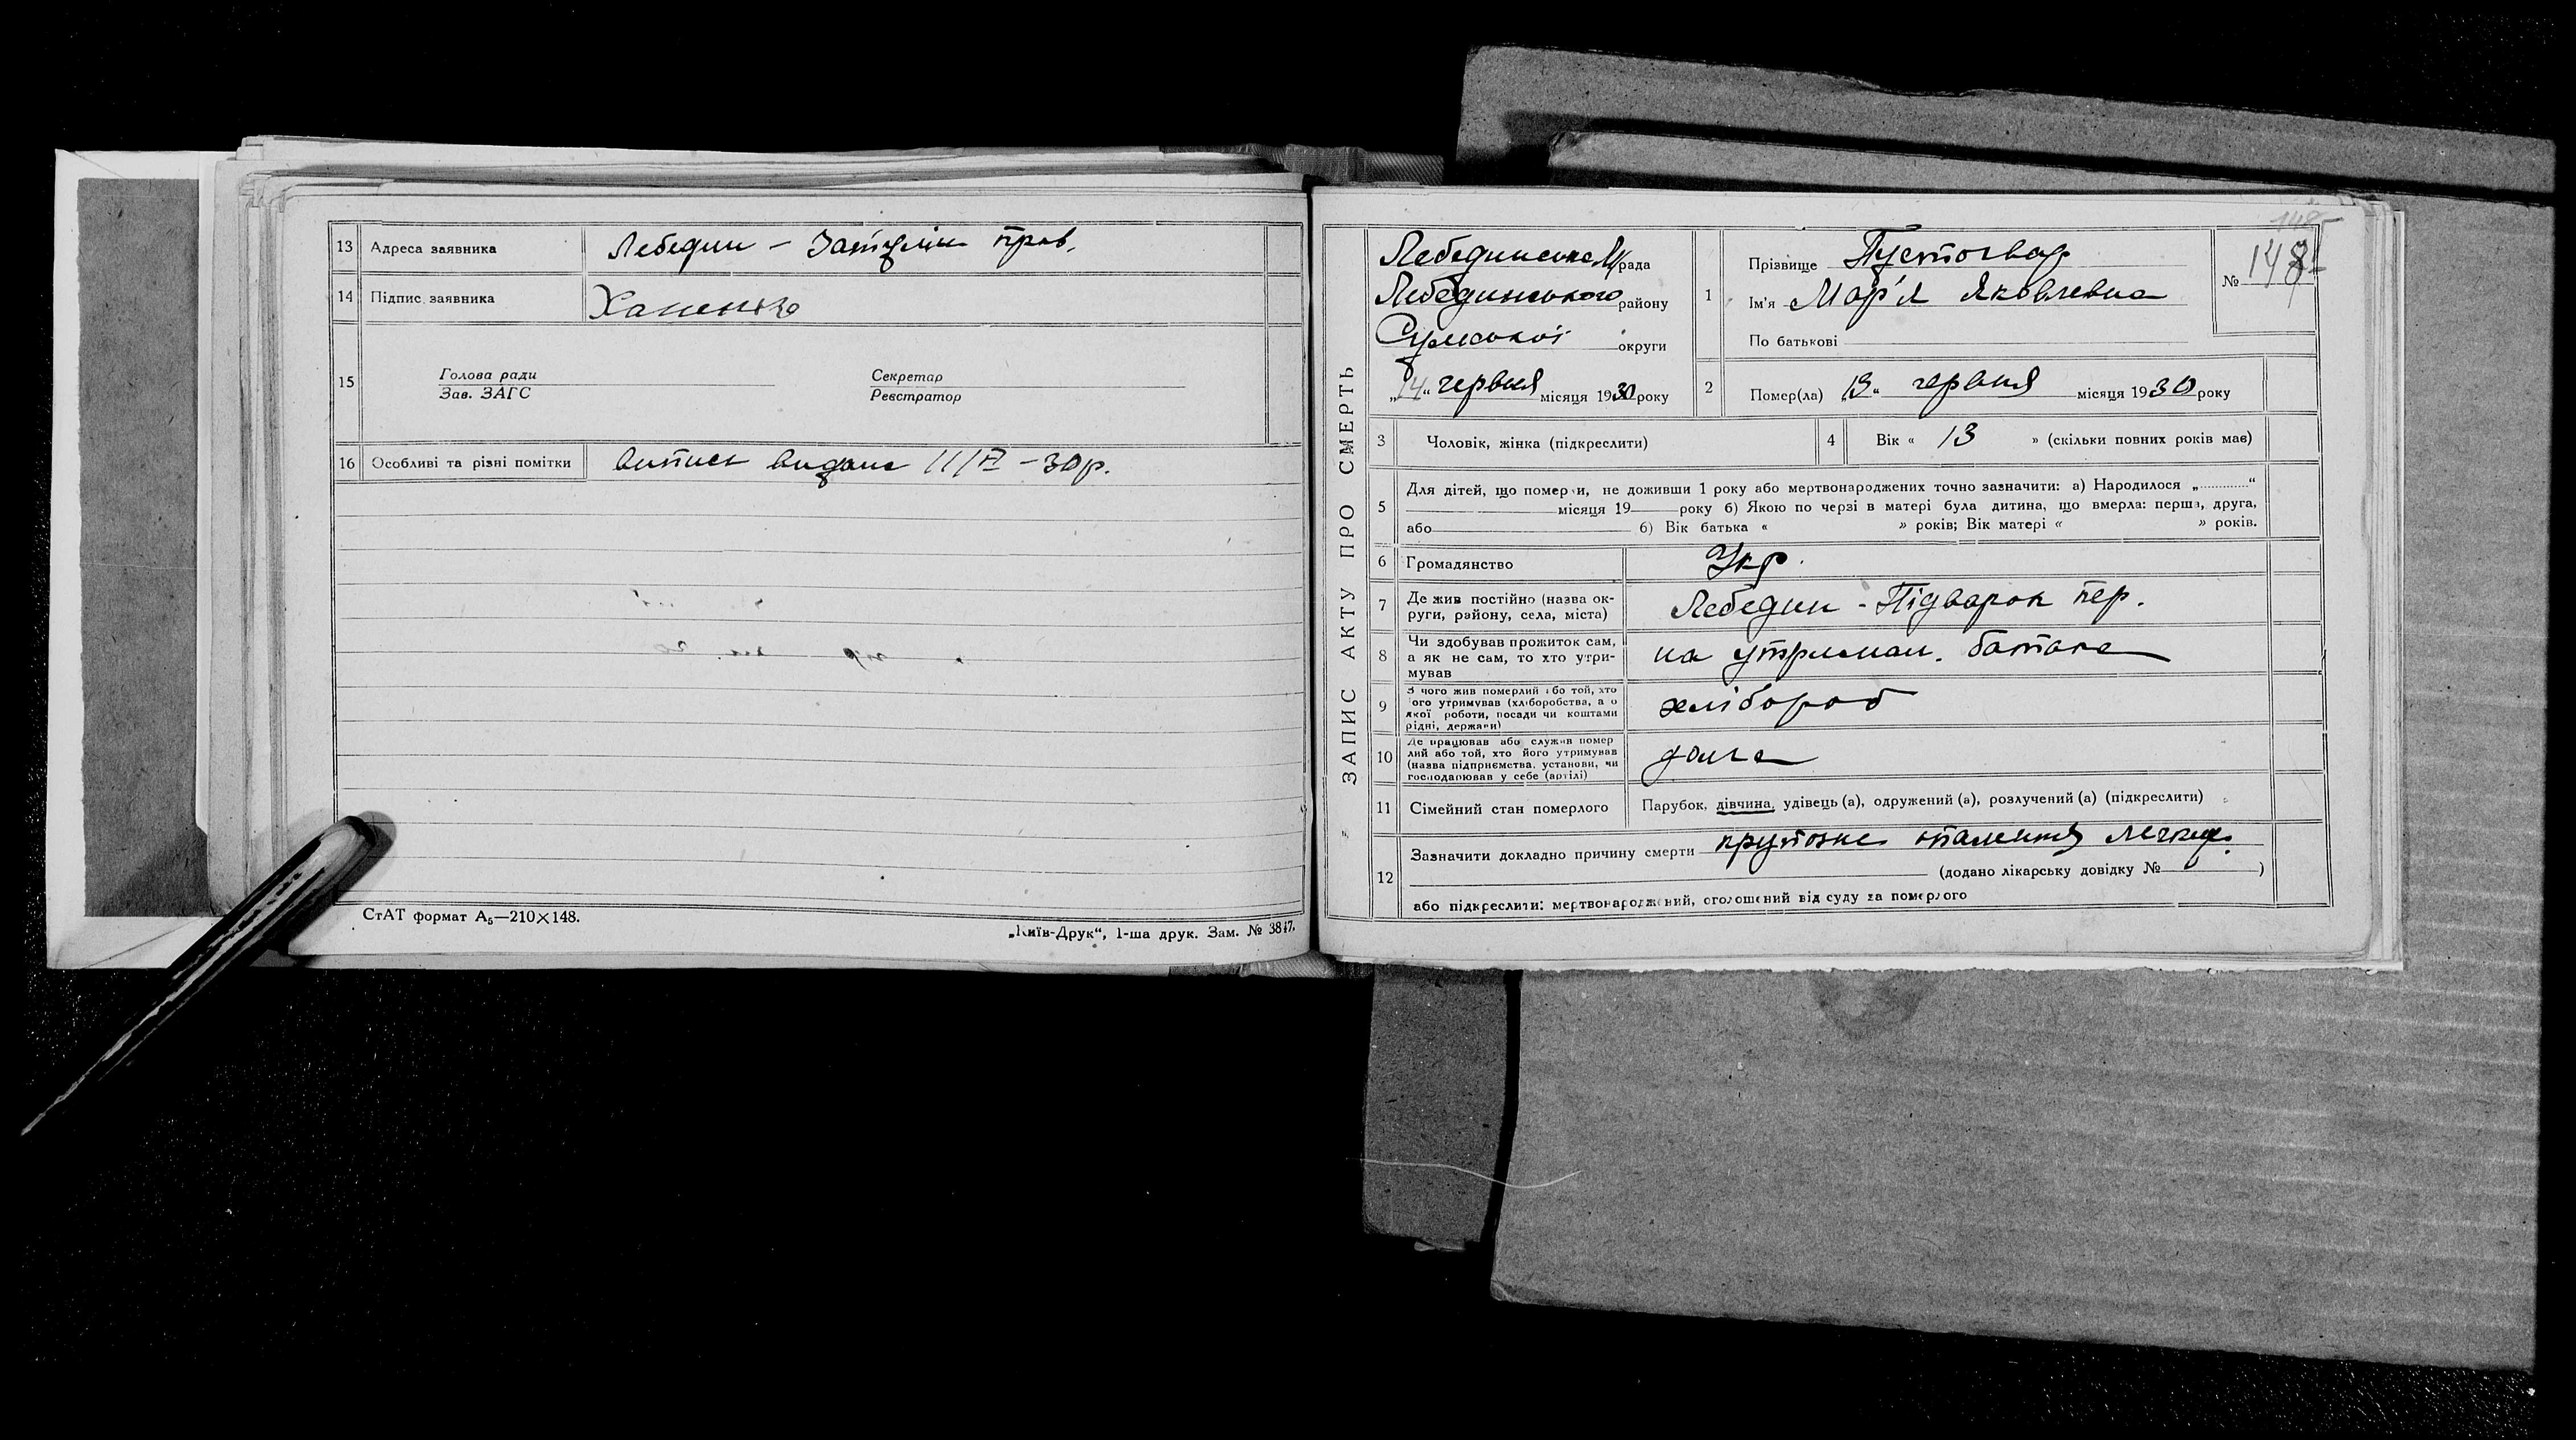 13 Адреса заявника Лебедин – Заторлін пров.
14 Підпис заявника Ханенко
15 Голова ради Секретар
Зав. ЗАГС Реєстратор
16 Особливі та різні помітки Витяг видано 11/VI – 30 р.
СтАТ формат А₅—210×148.
„Київ-Друк“, 1-ша друк. Зам. № 3847.
148
ЗАПИС АКТУ ПРО СМЕРТЬ
Лебединська М/рада
Лебединського району
Сумської округи
„14“ червня місяця 1930 року
1 Прізвище Пустогвар
Ім'я Мар'я Яковлевна
По батькові
№ 148
2 Помер(ла) „13“ червня місяця 1930 року
3 Чоловік, жінка (підкреслити)
4 Вік « 13 » (скільки повних років має)
5 Для дітей, що померли, не доживши 1 року або мертвонароджених точно зазначити: а) Народилося „............“
місяця 19 року б) Якою по черзі в матері була дитина, що вмерла: перша, друга,
або б) Вік батька « » років; Вік матері « » років.
6 Громадянство Укр.
7 Де жив постійно (назва ок-
руги, району, села, міста) Лебедин - Підварок пер.
8 Чи здобував прожиток сам,
а як не сам, то хто утри-
мував на утриман. батька
9 З чого жив померлий або той, хто
його утримував (хліборобства, а о
якої роботи, посади чи коштами
рідні, держави) хлібороб
10 Де працював або служив помер
лий або той, хто його утримував
(назва підприємства, установи, чи
господарював у себе (артілі) дома
11 Сімейний стан померлого Парубок, дівчина, удівець (а), одружений (а), розлучений (а) (підкреслити)
12 Зазначити докладно причину смерти крупозне запалення легких.
(додано лікарську довідку № )
або підкреслити: мертвонароджений, оголошений від суду за померлого